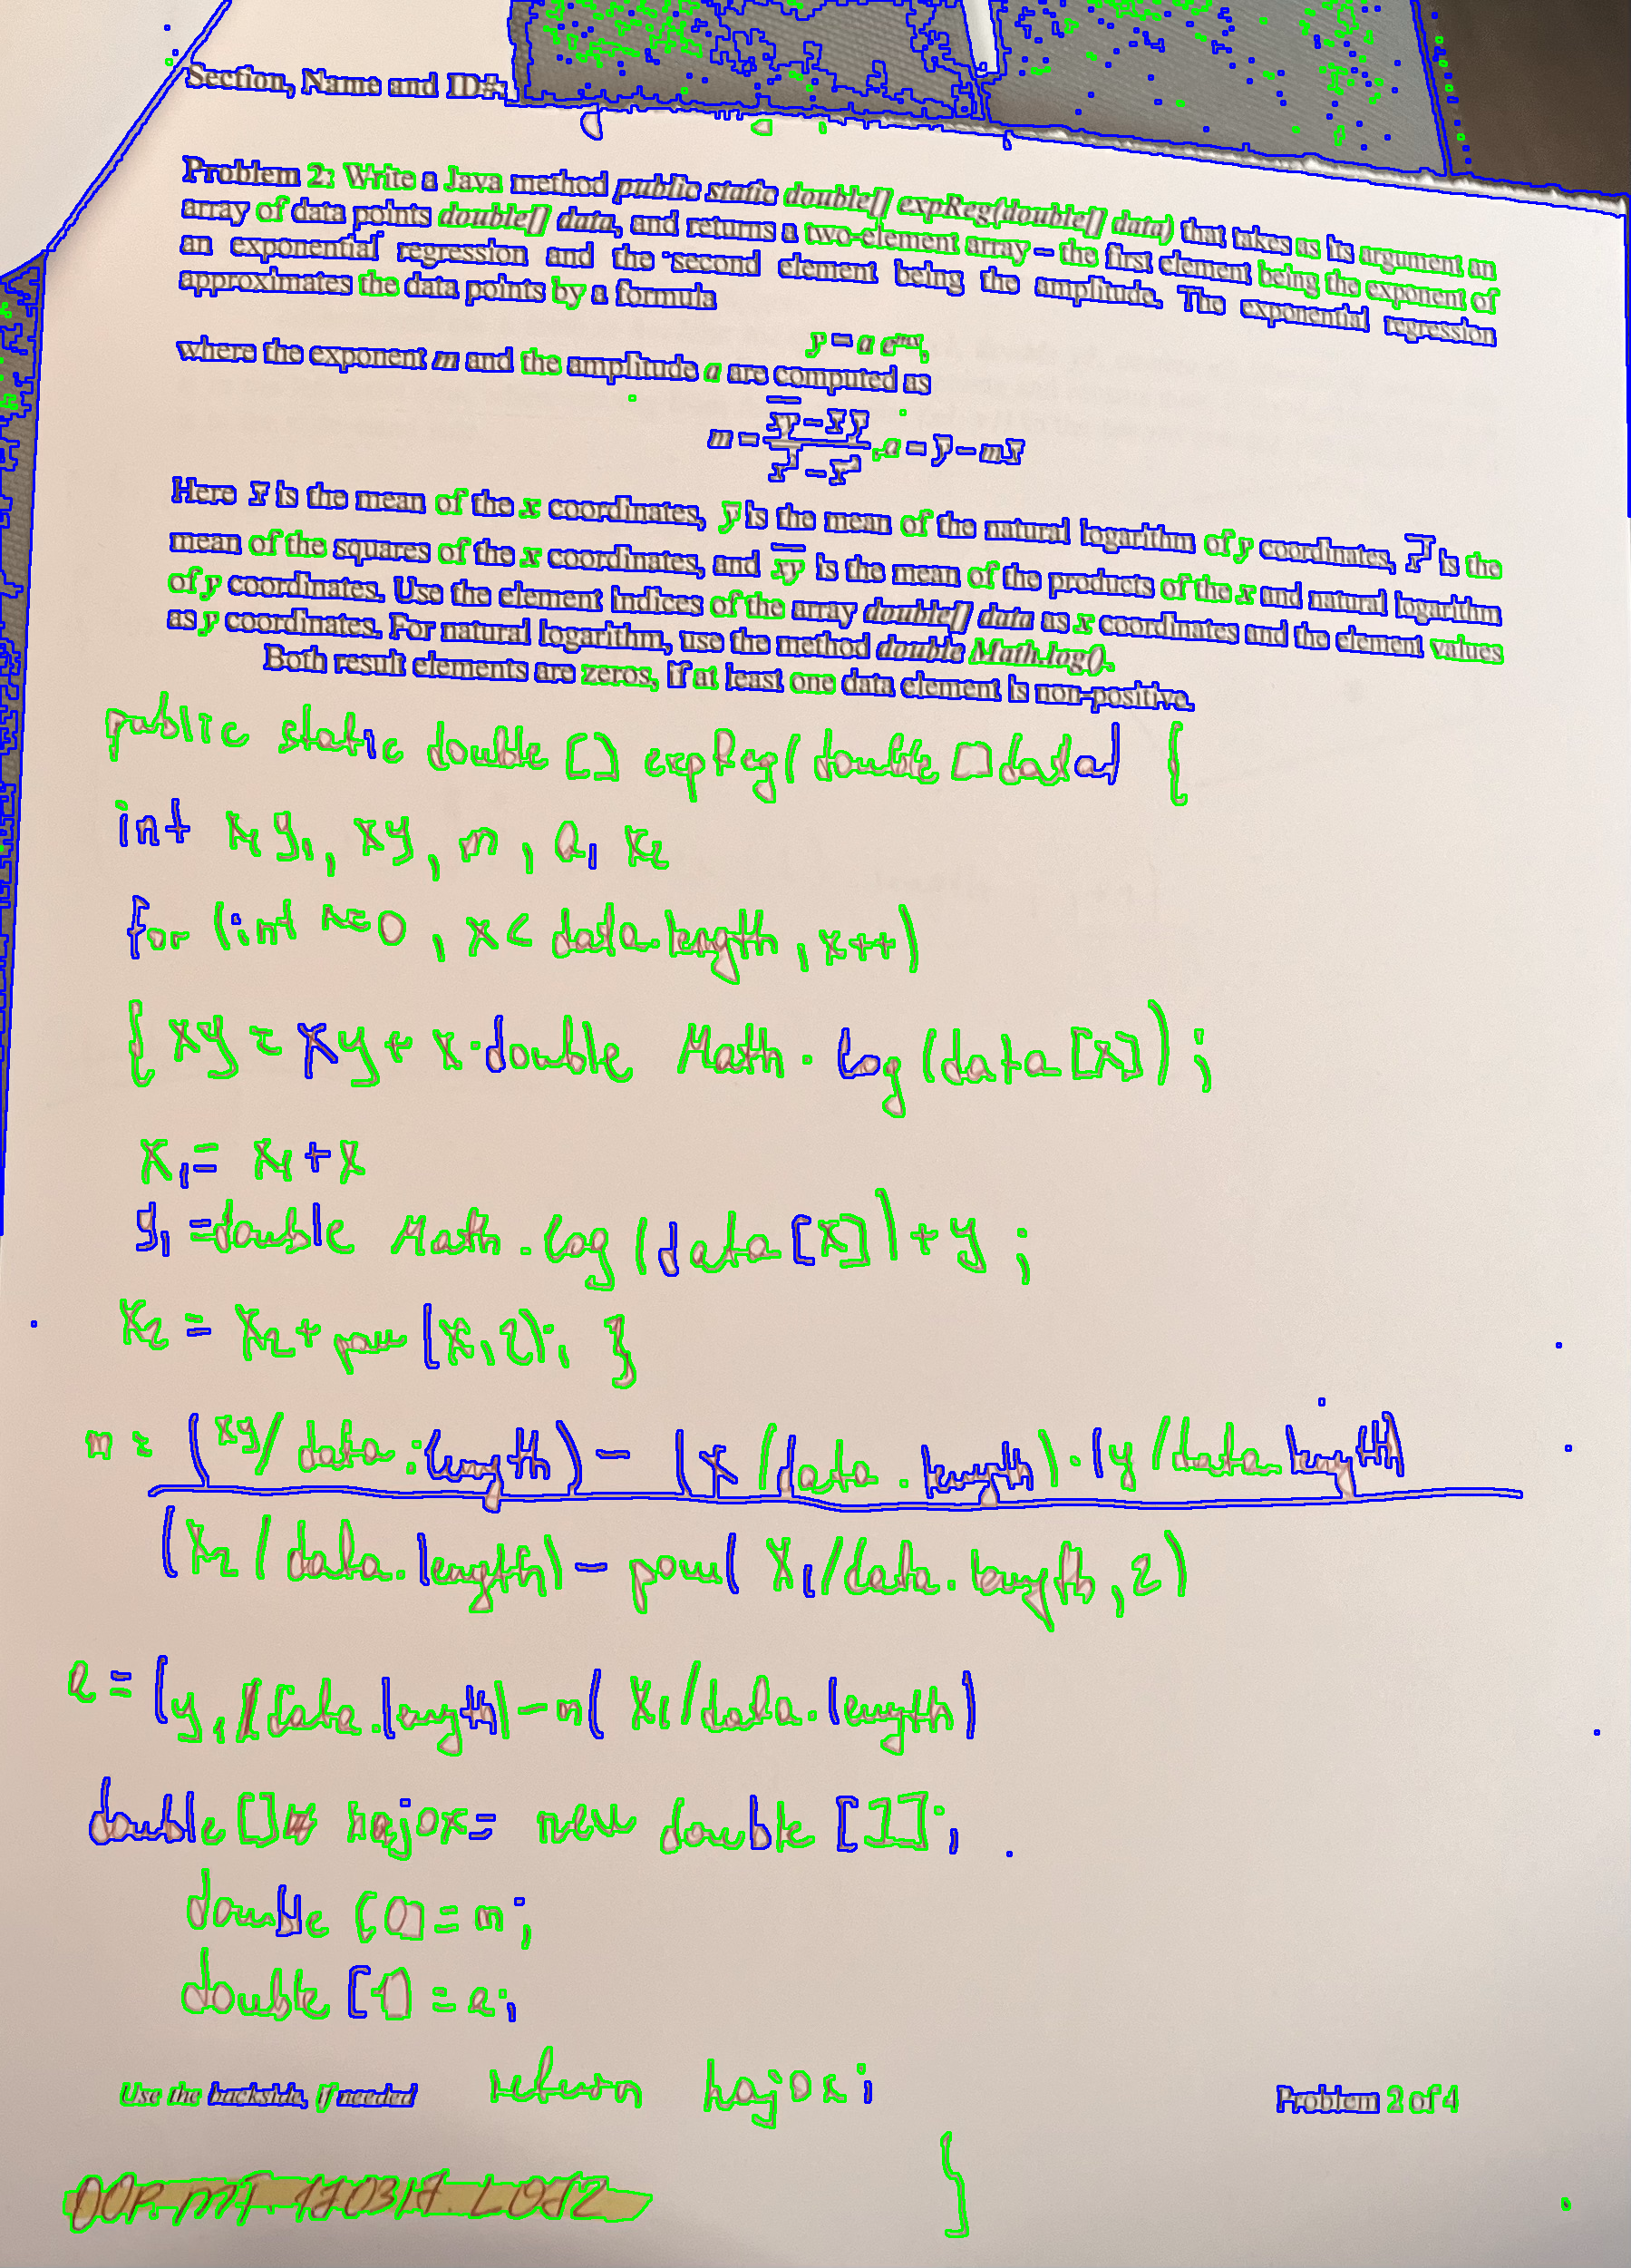 Section, Name and ID#:
Problem 2: Write a Java method public static double[] expReg(double[] data) that takes as its argument an
array of data points double[] data, and returns a two-element array – the first element being the exponent of
an exponential regression and the second element being the amplitude. The exponential regression
approximates the data points by a formula
y = a e^mx,
where the exponent m and the amplitude a are computed as
m = (x̅y̅ - x̅ y̅) / (x̅²̅ - x̅²), a = y̅ - m x̅
Here x̅ is the mean of the x coordinates, y̅ is the mean of the natural logarithm of y coordinates, x̅²̅ is the
mean of the squares of the x coordinates, and x̅y̅ is the mean of the products of the x and natural logarithm
of y coordinates. Use the element indices of the array double[] data as x coordinates and the element values
as y coordinates. For natural logarithm, use the method double Math.log().
Both result elements are zeros, if at least one data element is non-positive.
public static double [] expReg(double [] data) {
int x1 y1, xy, m, a, x2
for (int x=0, x< data.length, x++)
{ xy = xy + x·double Math.log(data[x]);
x1= x1+x
y1 =double Math.log(data[x])+y ;
x2 = x2+pow(x,2); }
m = (xy/data.length) - (x/data.length)·(y/data length)
(x2/data.length) - pow(x1/data.length,2)
a = (y1/data.length)-m(x1/data.length)
double [] hajox= new double [1];
double [0]=m;
double [1]=a;
return hajox;
Use the backside, if needed
Problem 2 of 4
}
OOP.MT.170317.LOJ2